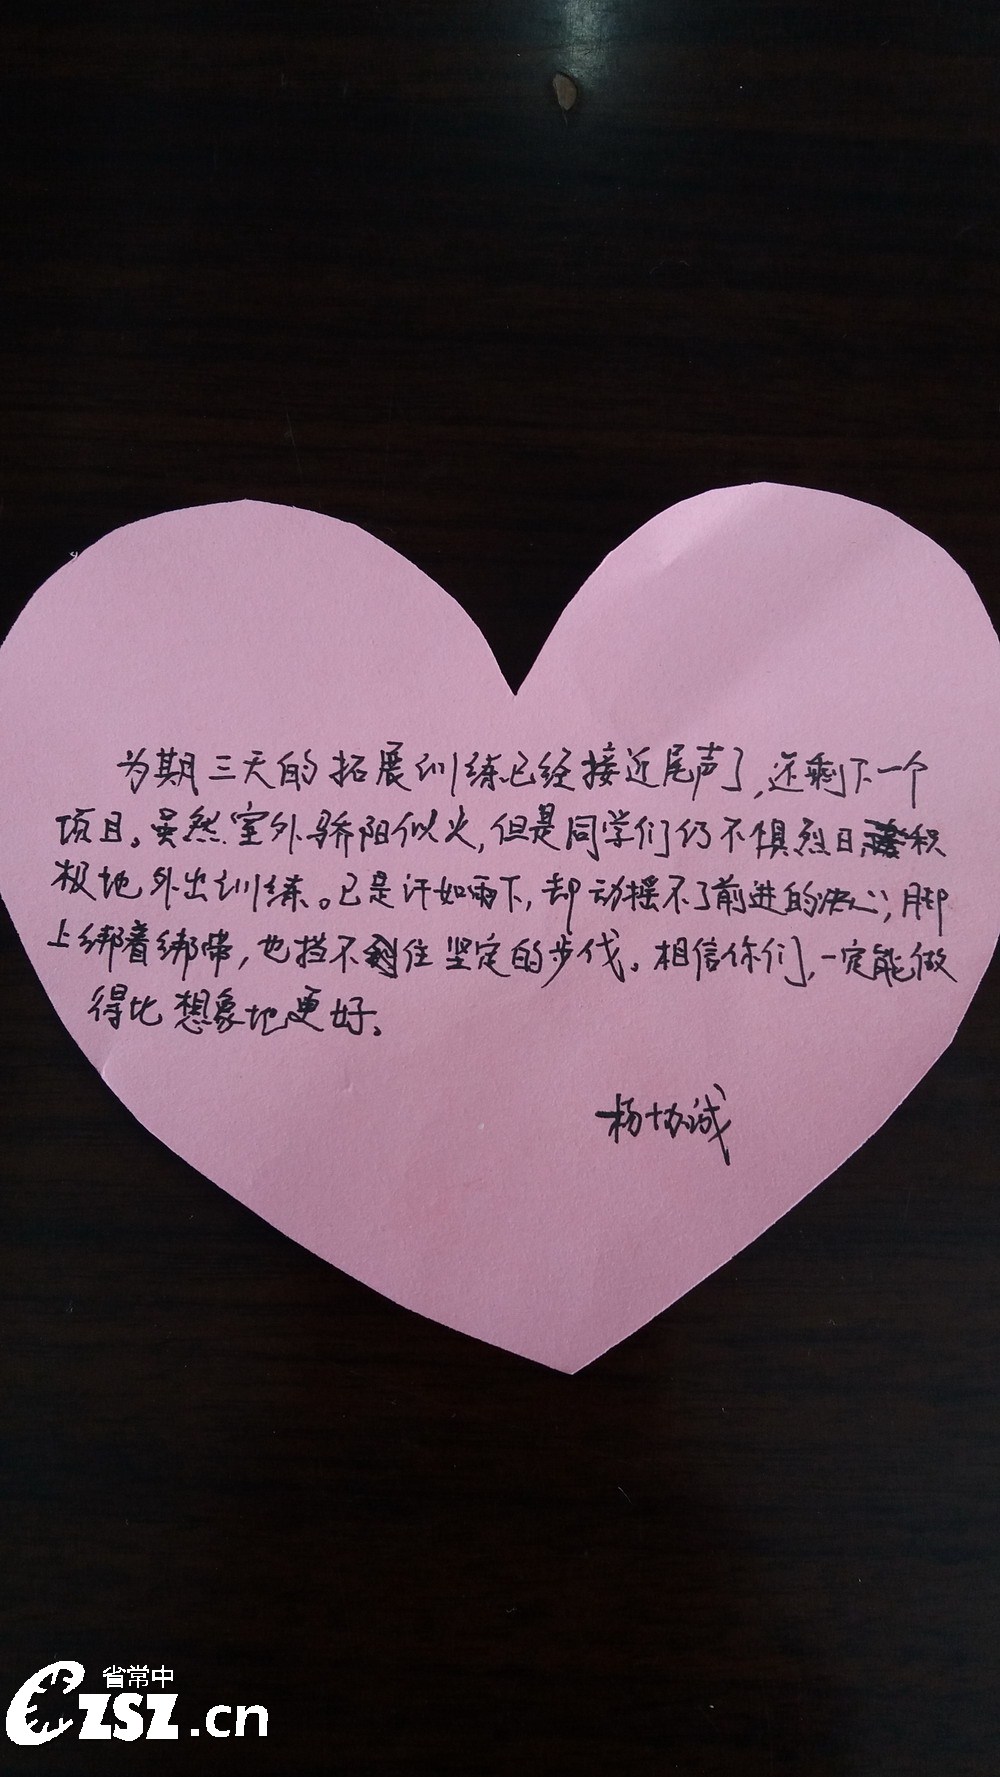 为期三天的拓展训练已经接近尾声了,还剩下一个
项目。虽然室外骄阳似火,但是同学们仍不惧烈日,积
极地外出训练。已是汗如雨下,却动摇不了前进的决心;脚
上绑着绑带,也挡不住坚定的步伐。相信你们,一定能做
得比想象地更好。
杨协诚
省常中
CZSZ.cn